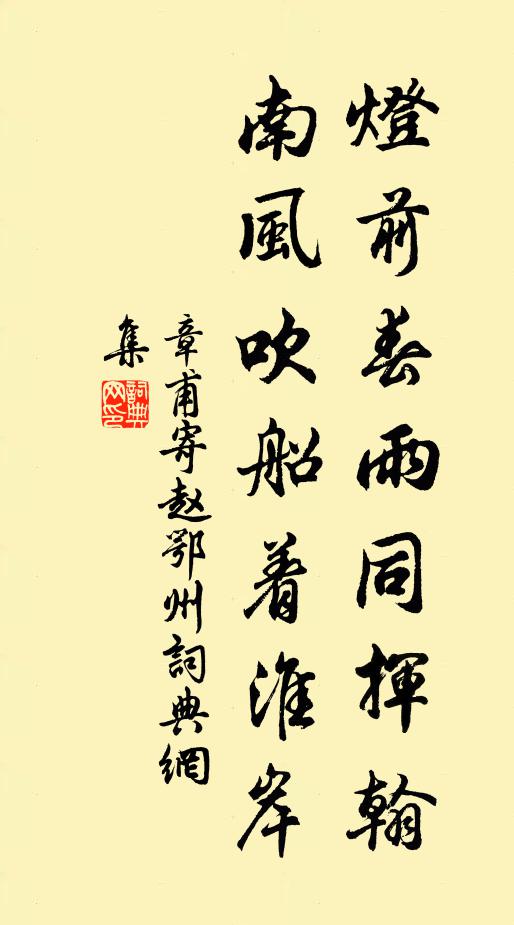 燈前春雨同揮翰
南風吹船着淮岸
章甫寄赵鄂州詞典網
集
詞典
网印